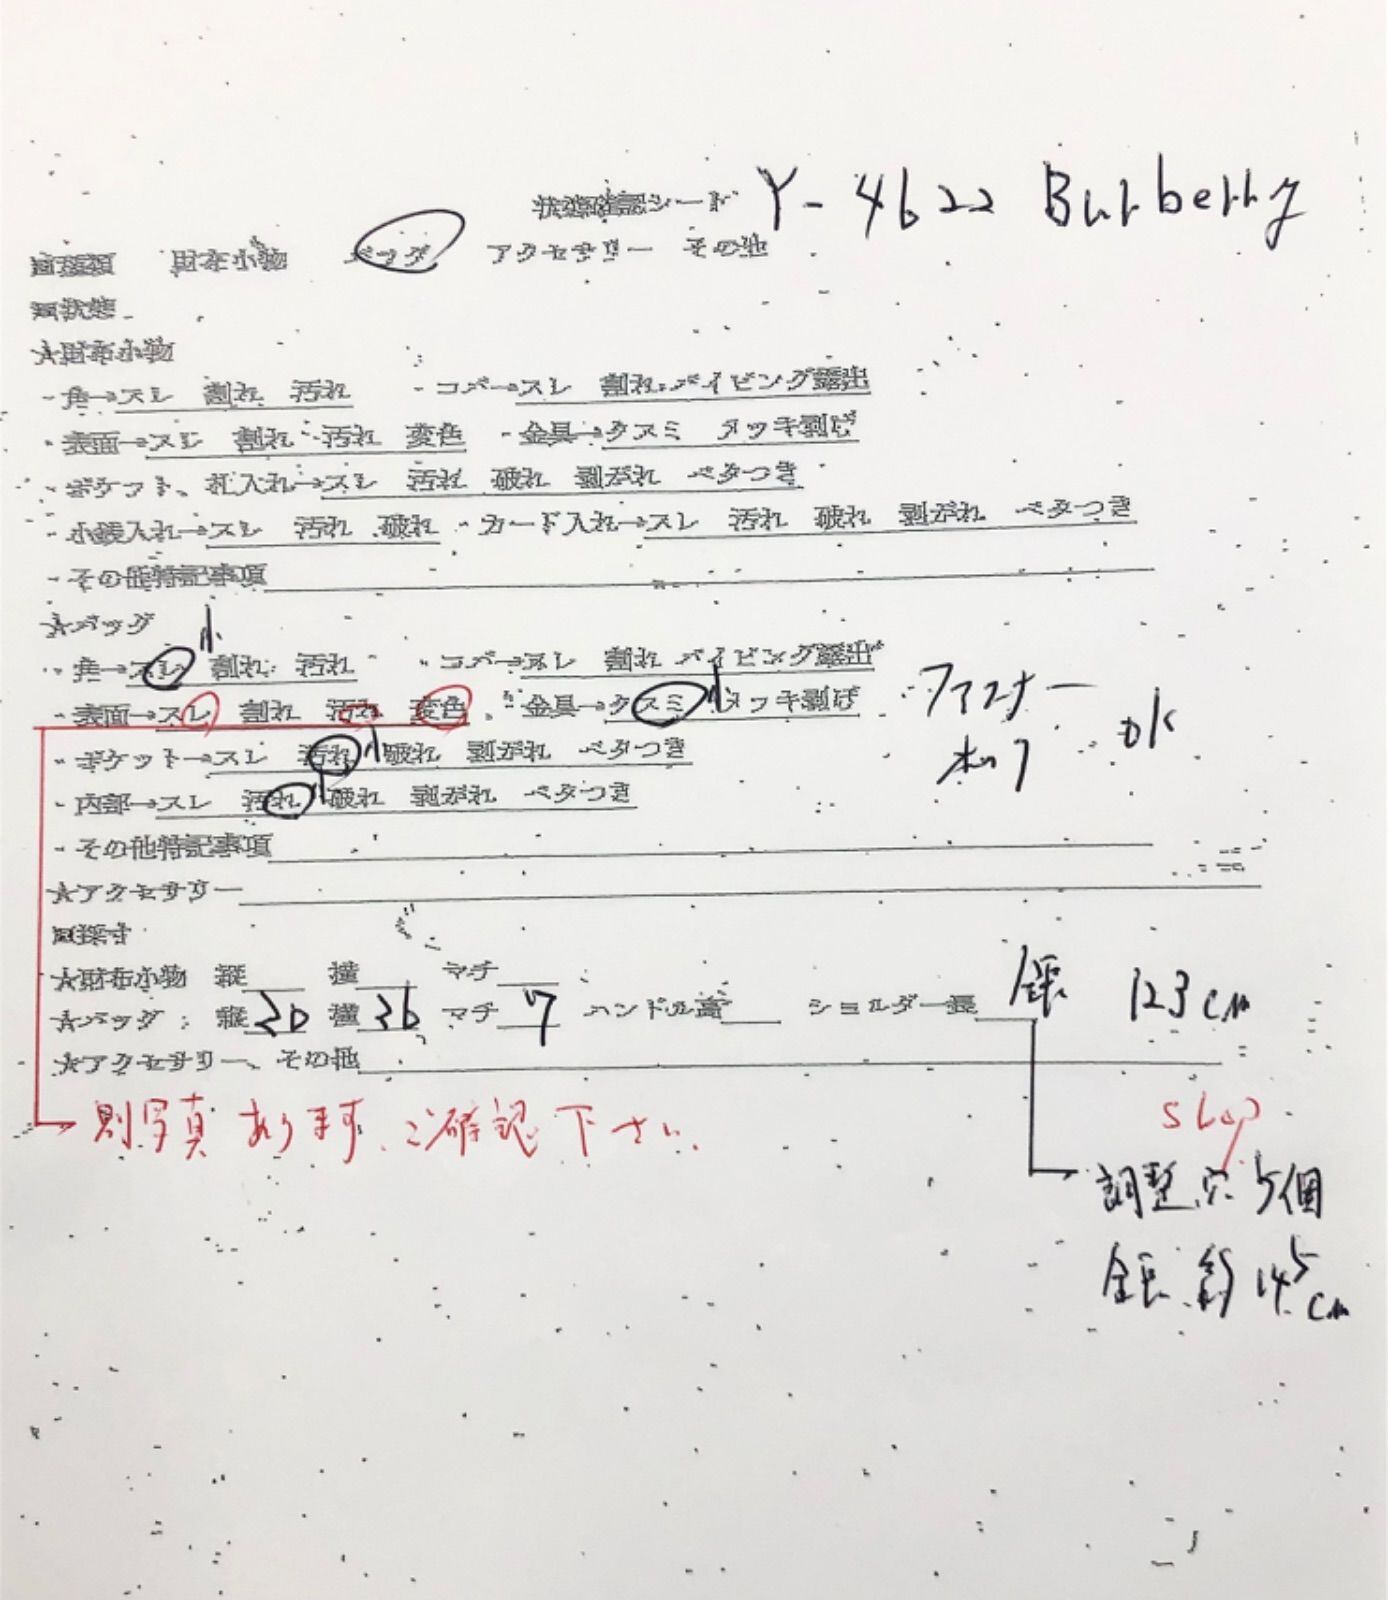 状態確認シート Y-4622 Burberry
■種類 財布小物 バッグ アクセサリー その他
■状態
★財布小物
・角→スレ 割れ 汚れ ・コバ→スレ 割れ パイピング露出
・表面→スレ 割れ 汚れ 変色 ・金具→クスミ メッキ剥げ
・ポケット、札入れ→スレ 汚れ 破れ 剥がれ ベタつき
・小銭入れ→スレ 汚れ 破れ ・カード入れ→スレ 汚れ 破れ 剥がれ ベタつき
・その他特記事項
★バッグ
小
・角→スレ 割れ 汚れ ・コバ→スレ 割れ パイピング露出
・表面→スレ 割れ 汚れ 変色 ・金具→クスミ 小 メッキ剥げ
ファスナー
ホック OK
・ポケット→スレ 汚れ 小 破れ 剥がれ ベタつき
・内部→スレ 汚れ 小 破れ 剥がれ ベタつき
・その他特記事項
★アクセサリー
■採寸
★財布小物 縦 横 マチ
★バッグ:縦30 横36 マチ7 ハンドル高 ショルダー長 全長 123cm
★アクセサリー、その他
別写真あります、ご確認下さい。
stop
調整穴5個
全長 約145cm